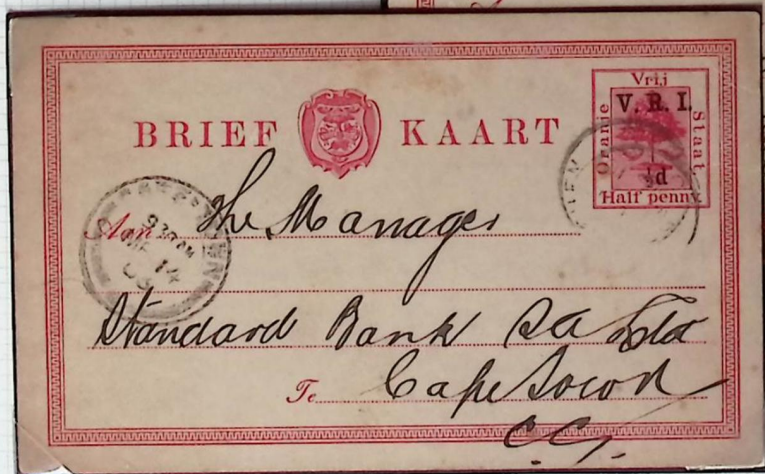 BRIEF KAART
Vrij
Oranje
Staat
V. R. I.
½d
Half penny.
Aan The Manager
Standard Bank SA Ltd
Te Cape Town
C.C.
9 30 AM
14